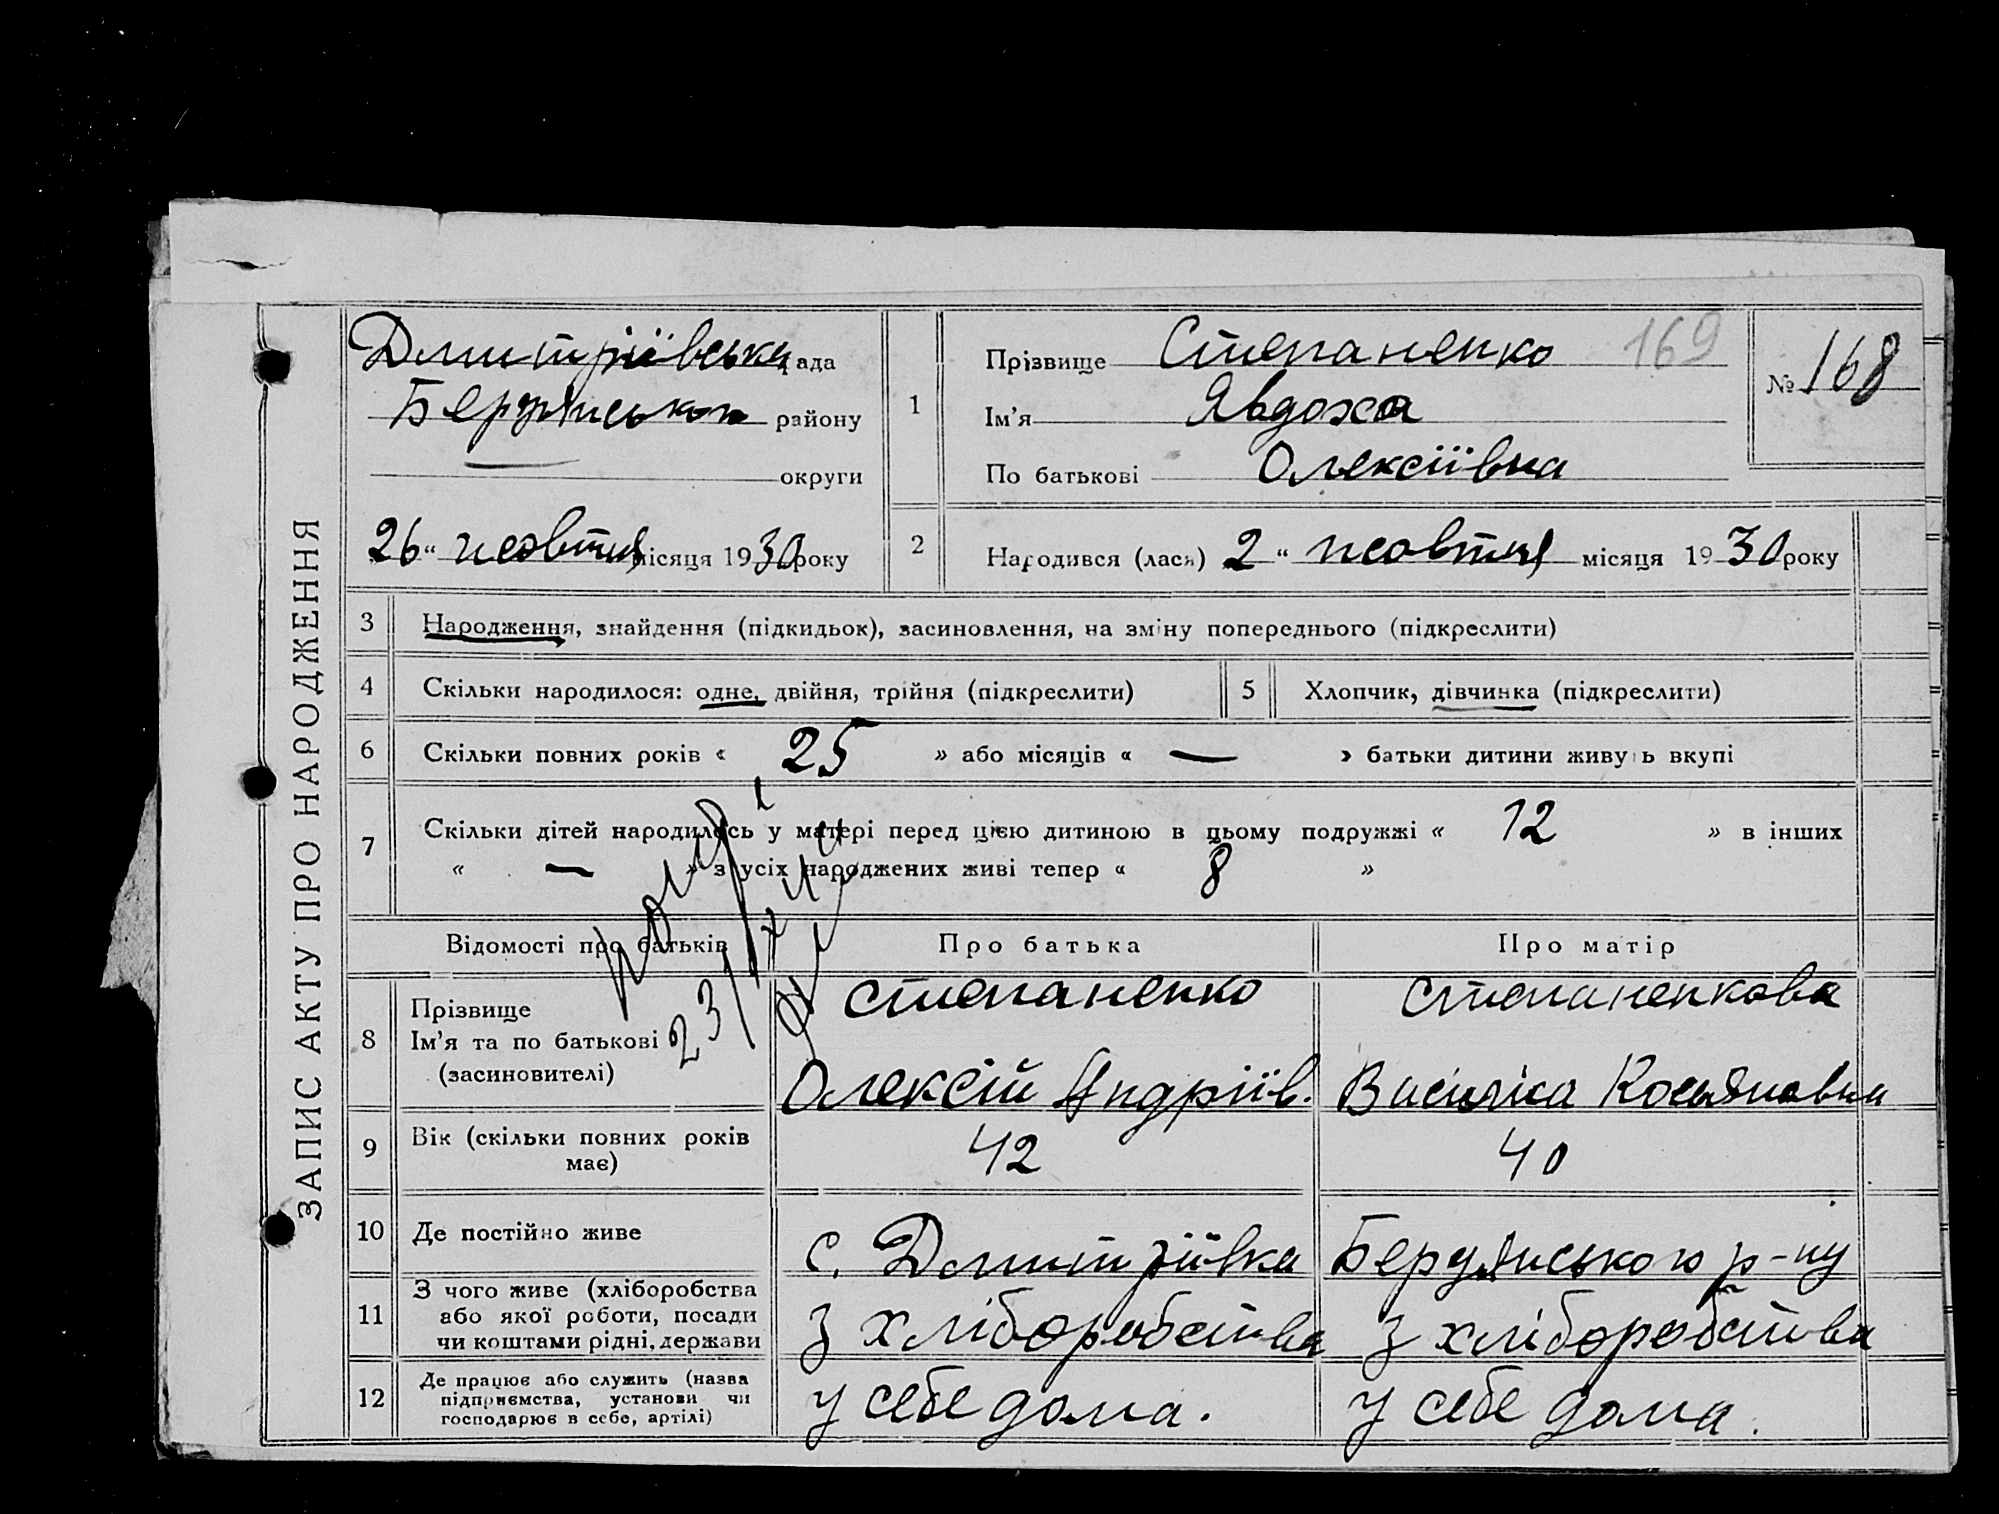 ЗАПИС АКТУ ПРО НАРОДЖЕННЯ
Дмитріївська рада
Бердянського району
округи
26 " жовтня місяця 1930 року
1
Прізвище Степаненко 169
Ім'я Явдоха
По батькові Олексіївна
№ 168
2
Народився (лася) 2 " жовтня місяця 1930 року
3 Народження, знайдення (підкидьок), засиновлення, на зміну попереднього (підкреслити)
4 Скільки народилося: одне, двійня, трійня (підкреслити) 5 Хлопчик, дівчинка (підкреслити)
6 Скільки повних років « 25 » або місяців « — » батьки дитини живуть вкупі
7 Скільки дітей народилось у матері перед цією дитиною в цьому подружжі « 12 » в інших
« — » з усіх народжених живі тепер « 8 »
Відомості про батьків Про батька Про матір
8 Прізвище Степаненко Степаненкова
Ім'я та по батькові
(засиновителі) Олексій Андріїв. Василіса Косьяновна
9 Вік (скільки повних років має) 42 40
10 Де постійно живе с. Дмитріївка Бердянського р-ну
11 З чого живе (хліборобства
або якої роботи, посади
чи коштами рідні, держави з хліборобства з хліборобства
12 Де працює або служить (назва
підприємства, установи чи
господарює в себе, артілі) у себе дома. у себе дома.